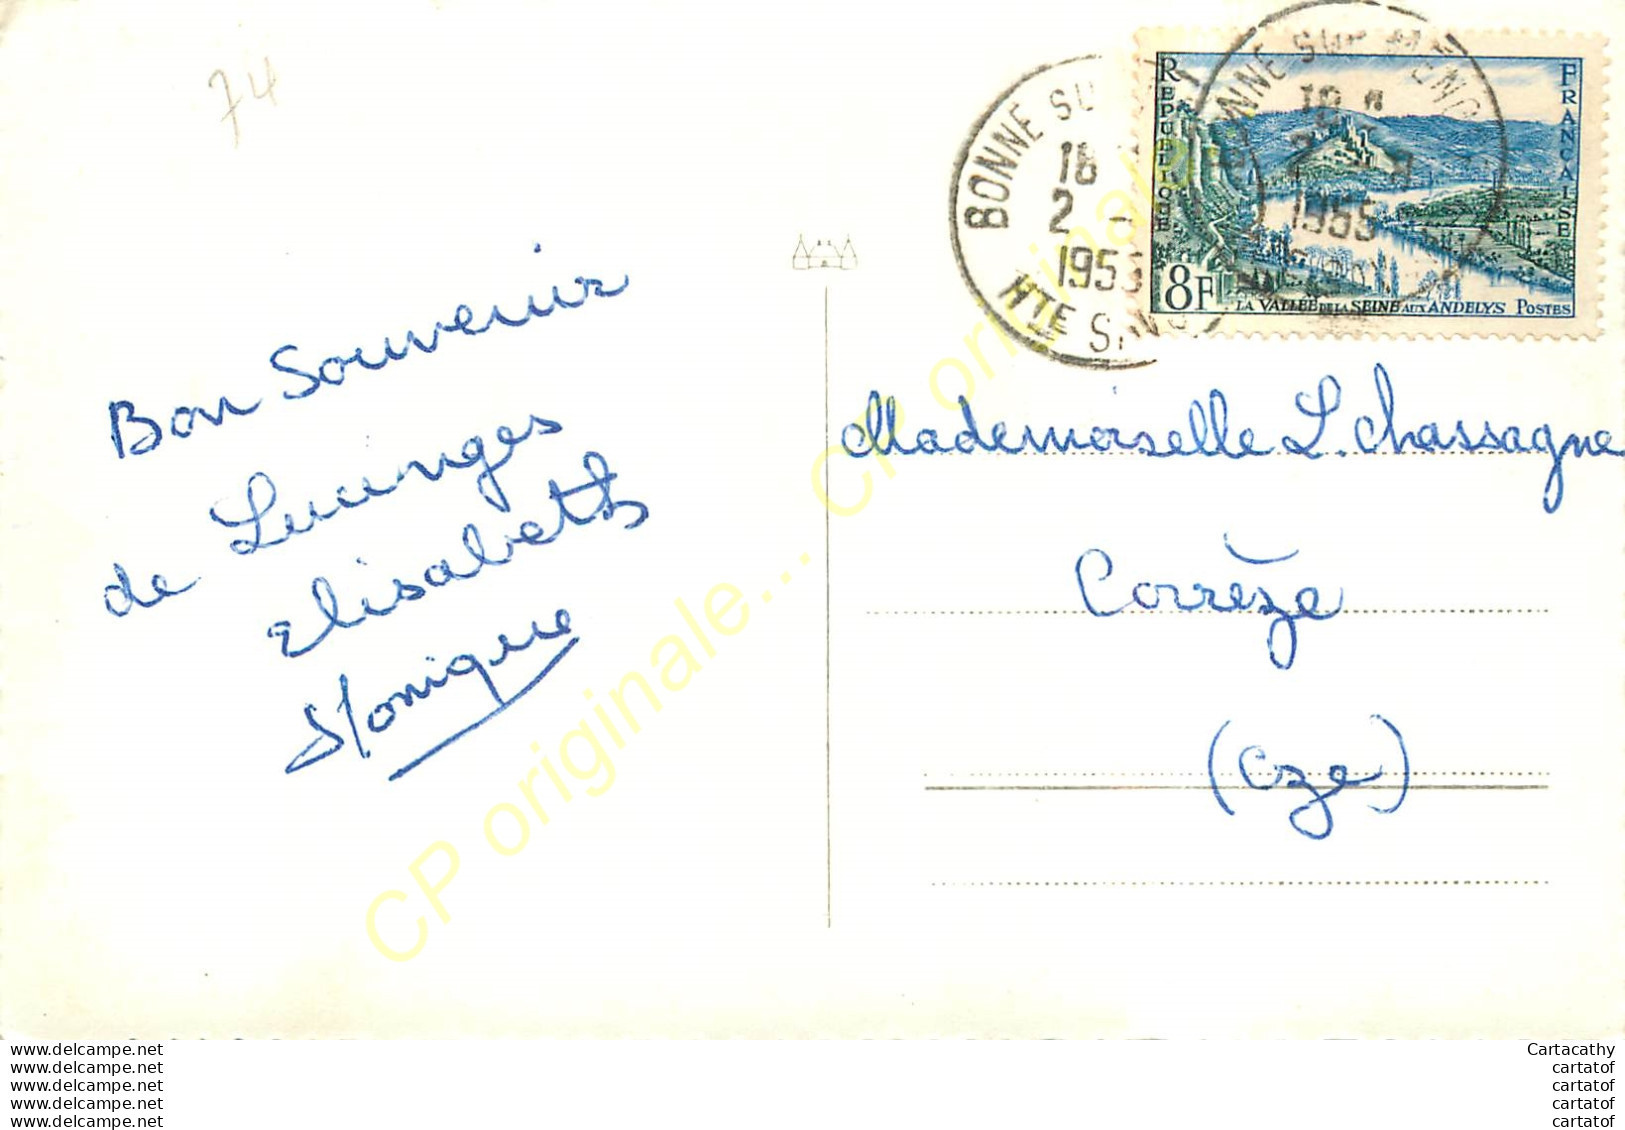 74
Bon Souvenir
de Lucinges
Elisabeth
Monique
BONNE SU
18
2 -
195
HTE SAVO
BONNE SUR MENOG
1955
REPUBLIQUE
FRANCAISE
8F
LA VALLÉE DE LA SEINE AUX ANDELYS POSTES
Mademoiselle L. Chassagne
Corrèze
(Cze)
CP originale... CP originale
www.delcampe.net
www.delcampe.net
www.delcampe.net
www.delcampe.net
www.delcampe.net
Cartacathy
cartatof
cartatof
cartatof
cartatof